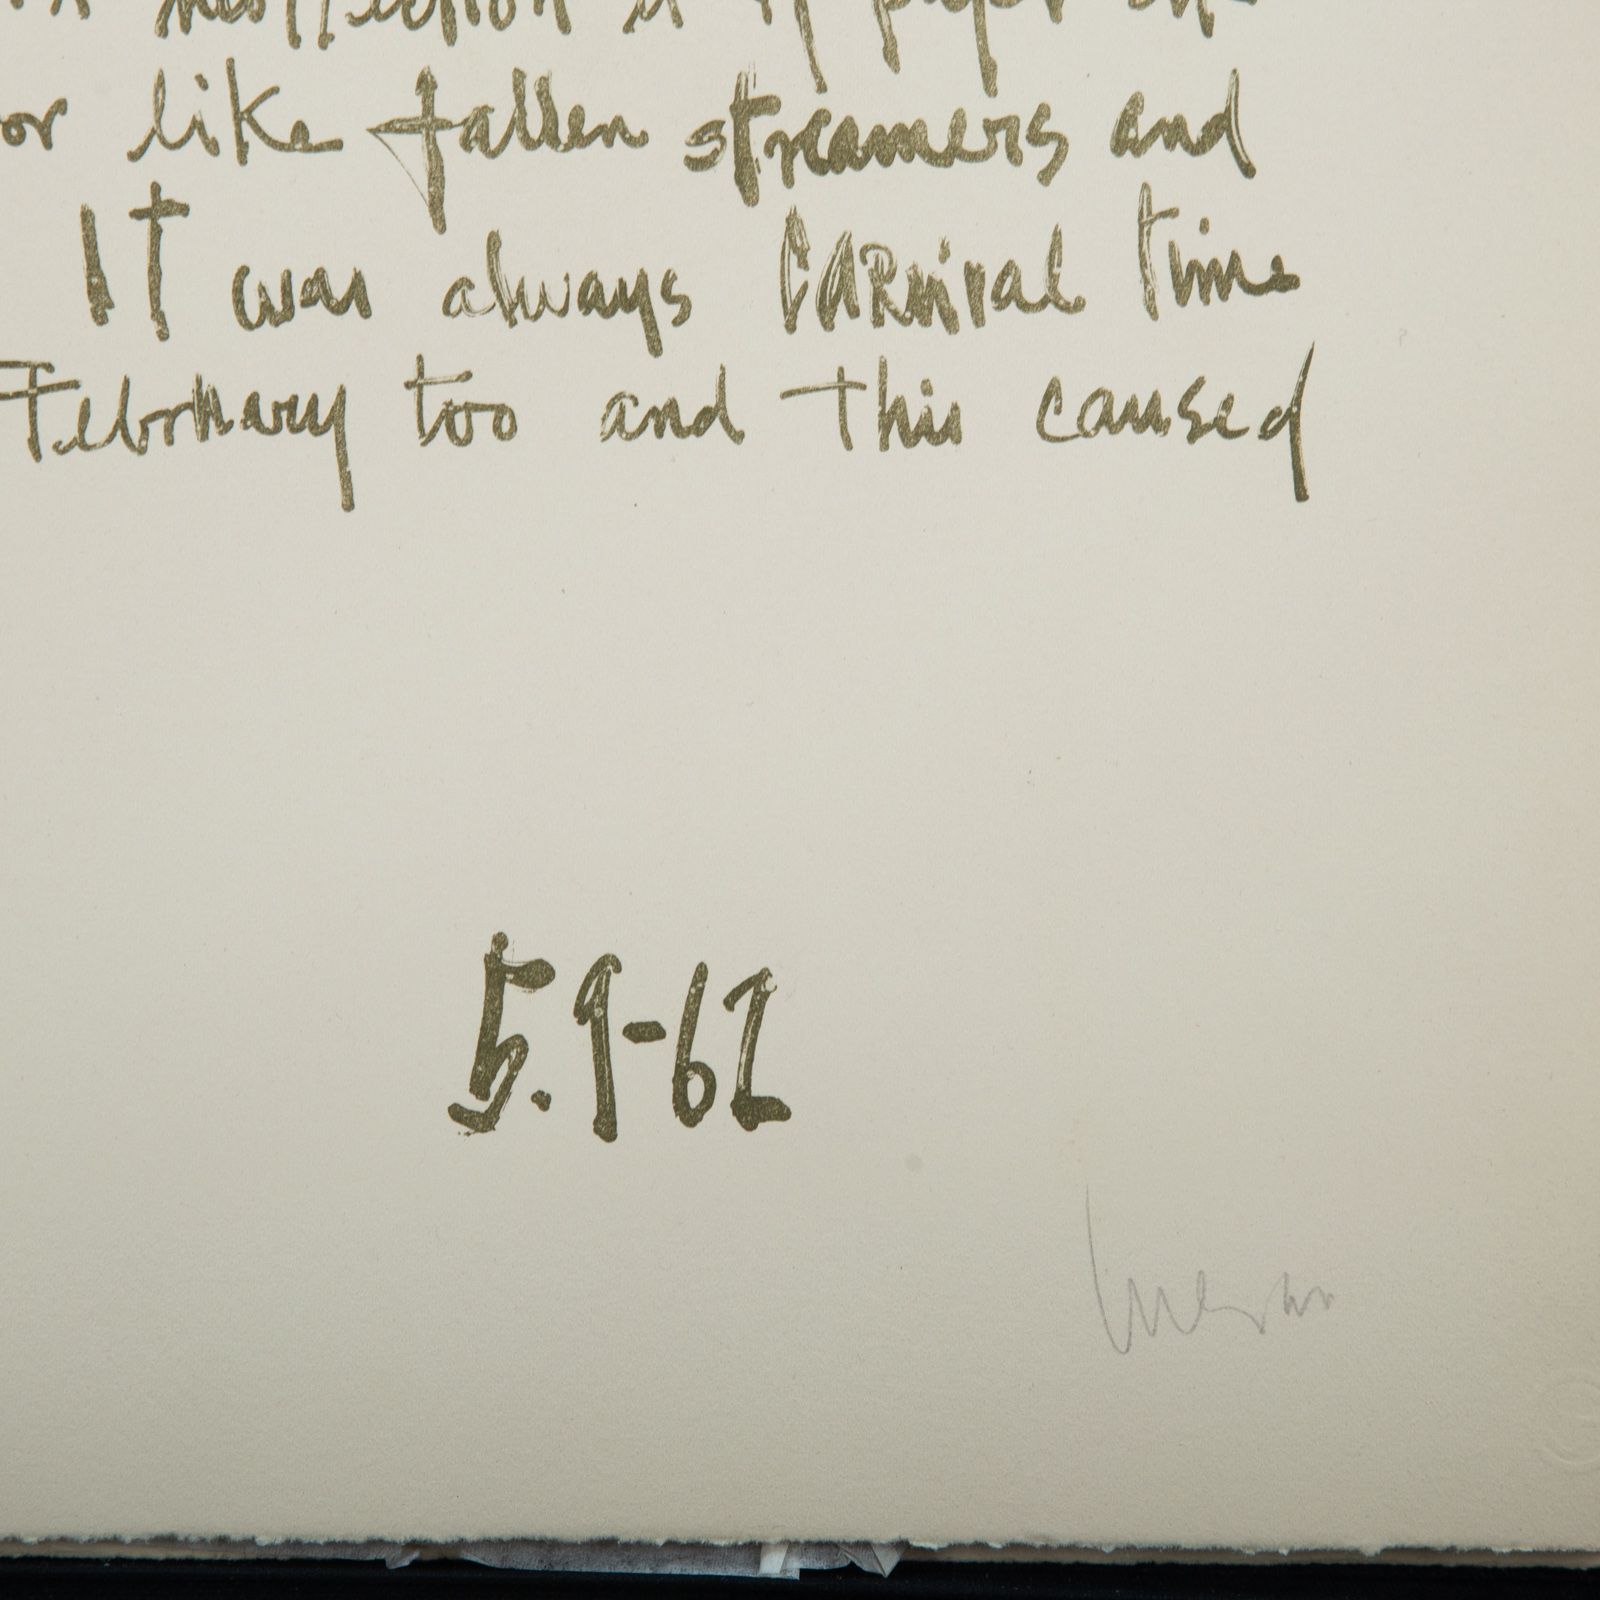 or like fallen streamers and
IT was always CARnival Time
February too and This caused
5.9-62